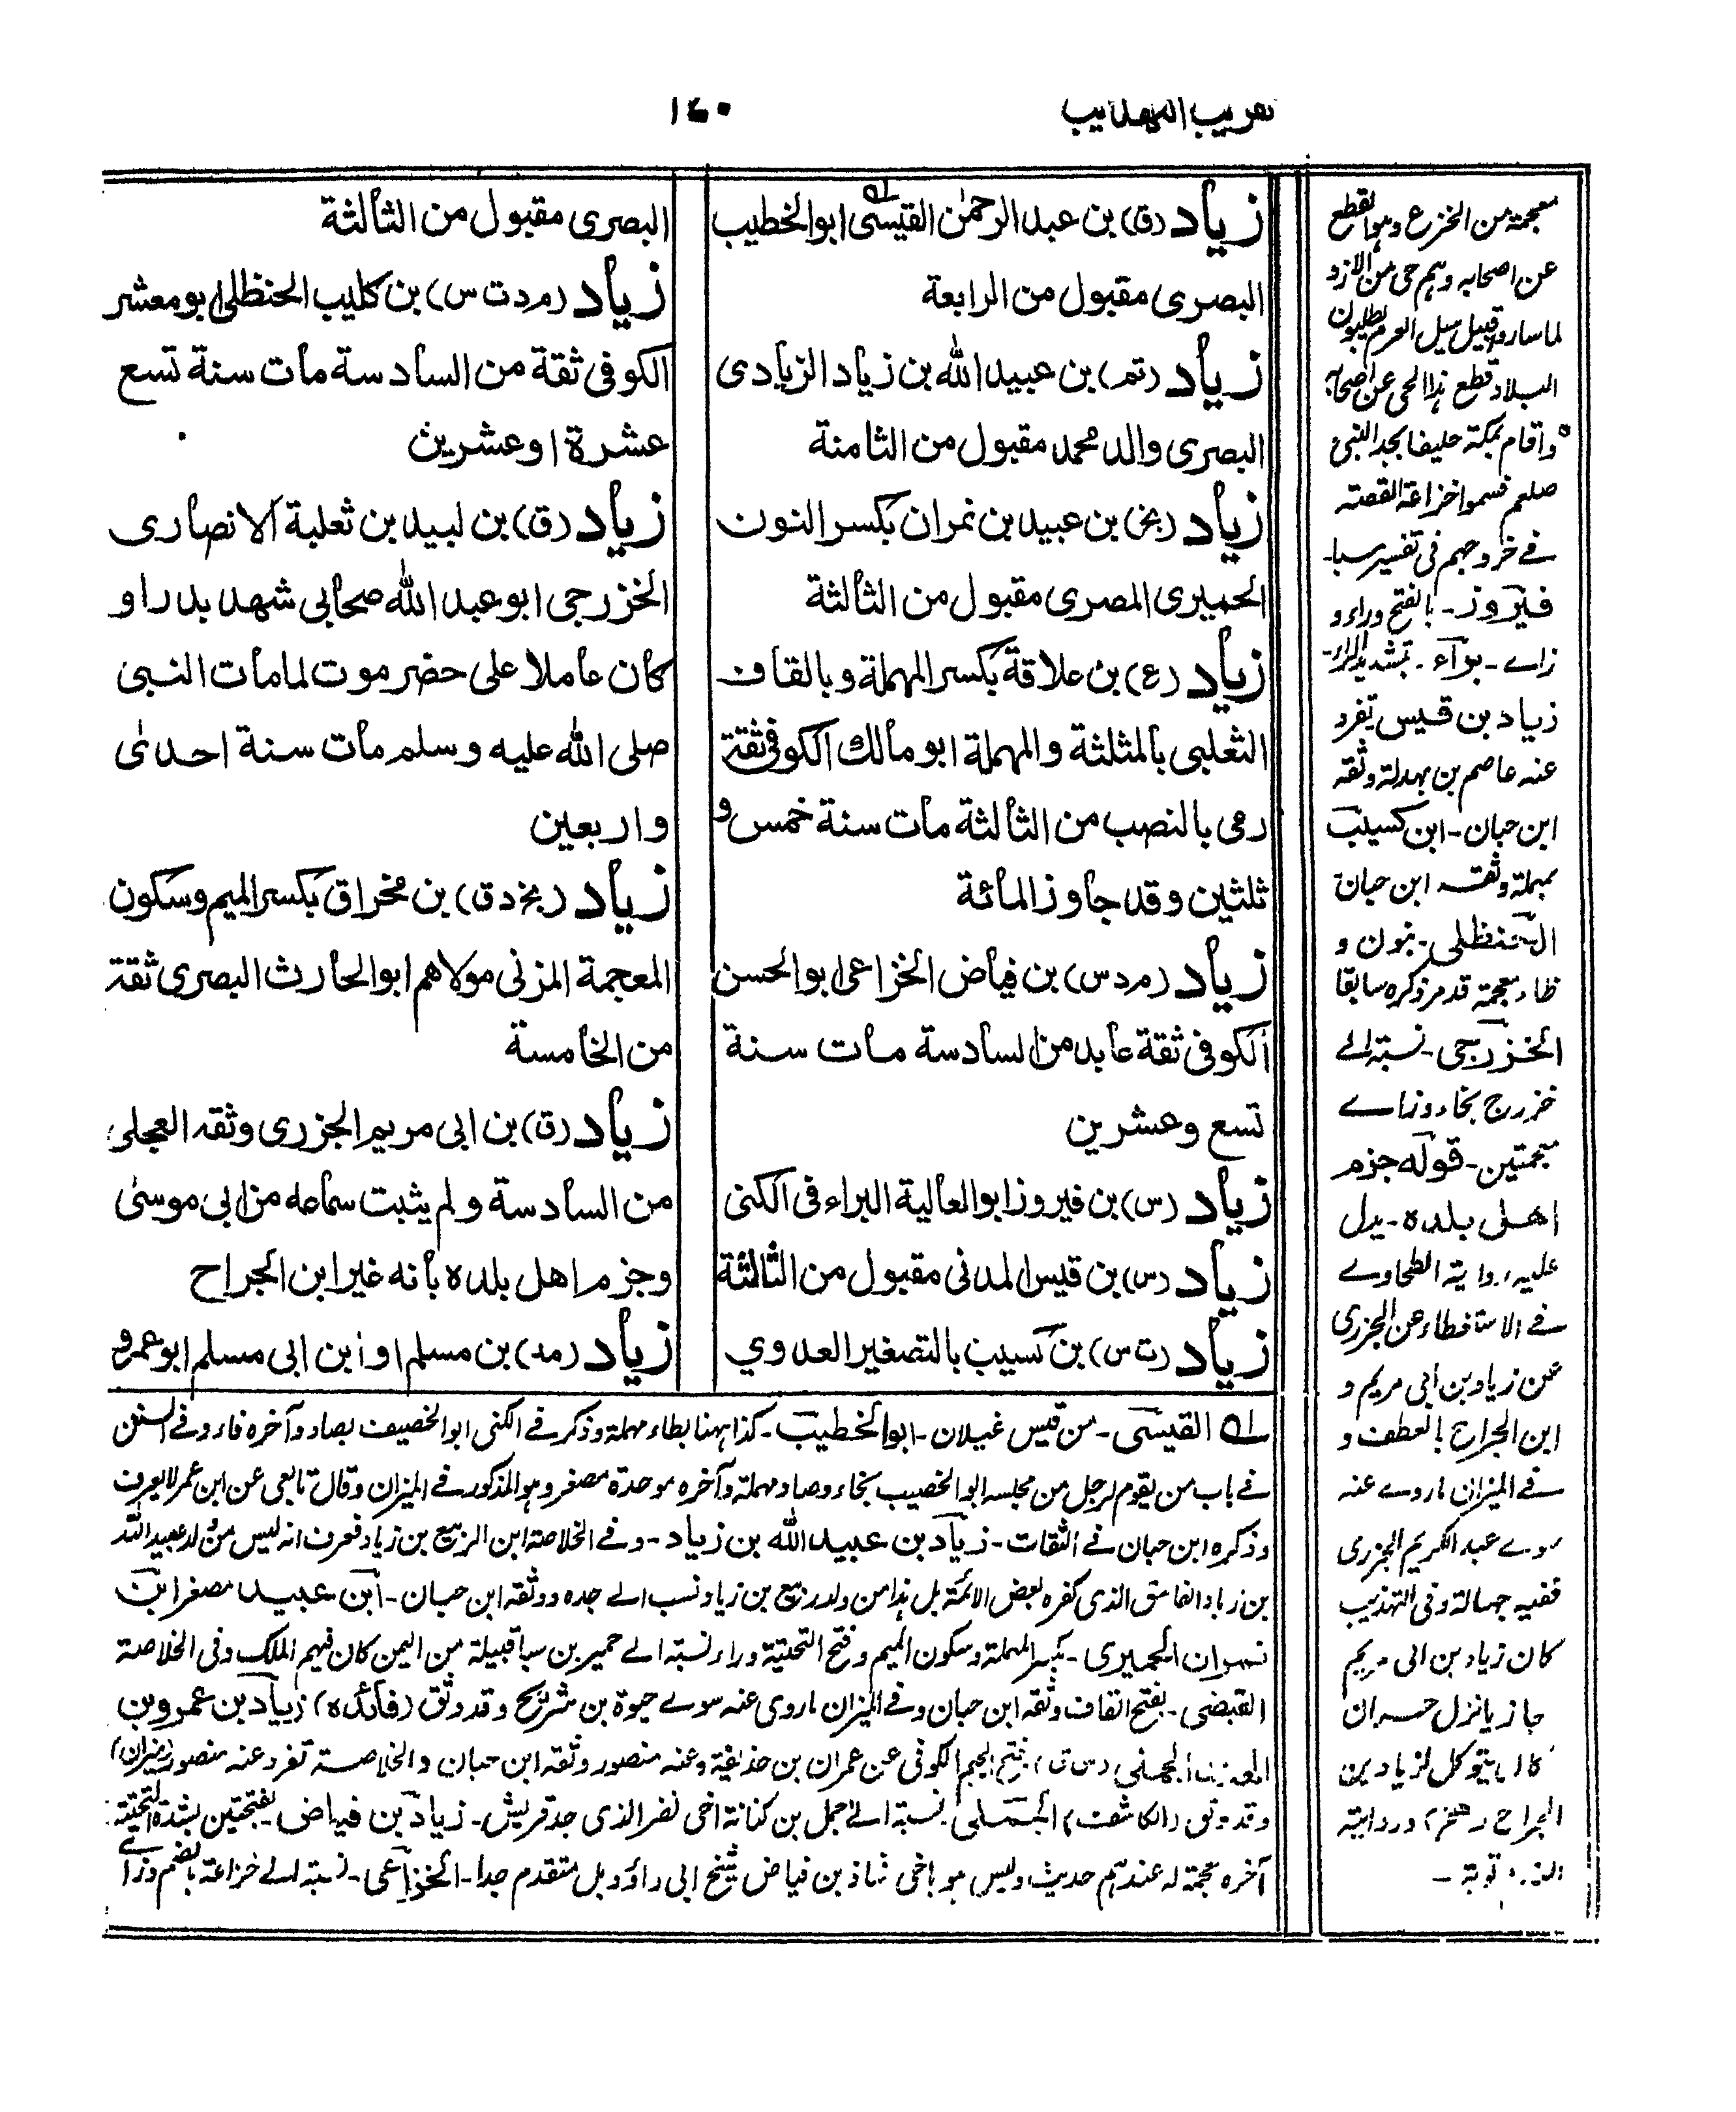 تقريب التهذيب
١٤٠
زياد (ق) بن عبد الرحمٰن القيسى ابو الخطيب
البصرى مقبول من الرابعة
زياد (تم) بن عبيد الله بن زياد الزيادى
البصرى والد محمد مقبول من الثامنة
زياد (بخ) بن عبيد بن نمران بكسر النون
الحميرى المصرى مقبول من الثالثة
زياد (ع) بن علاقة بكسر المهملة وبالقاف
الثعلبى بالمثلثة والمهملة ابو مالك الكوفى ثقة
رمى بالنصب من الثالثة مات سنة خمس و
ثلثين وقد جاوز المائة
زياد (م د س) بن فياض الخزاعى ابو الحسن
الكوفى ثقة عابد من السادسة مات سنة
تسع وعشرين
زياد (س) بن فيروز ابو العالية البراء فى الكنى
زياد (س) بن قيس المدنى مقبول من الثالثة
زياد (ت س) بن كسيب بالتصغير العدوي
البصرى مقبول من الثالثة
زياد (م د ت س) بن كليب الحنظلى ابو معشر
الكوفى ثقة من السادسة مات سنة تسع
عشرة او عشرين
زياد (ق) بن لبيد بن ثعلبة الانصارى
الخزرجى ابو عبد الله صحابى شهد بدرا و
كان عاملا على حضرموت لما مات النبى
صلى الله عليه وسلم مات سنة احدى
واربعين
زياد (بخ د ق) بن مخراق بكسر الميم وسكون
المعجمة المزنى مولاهم ابو الحارث البصرى ثقة
من الخامسة
زياد (ق) بن ابى مريم الجزرى وثقه العجلى
من السادسة ولم يثبت سماعه من ابى موسىٰ
وجزم اهل بلده بأنه غير ابن الجراح
زياد (مد) بن مسلم او ابن ابى مسلم ابو عمرو
له القيسى - من قيس غيلان - ابو الخطيب - كذا ههنا بطاء مهملة وذكر فے الكنى ابو الخصيف بصاد وآخره فاء وفے السنن
فے باب من يقوم لرجل من مجلسه ابو الخصيب بخاء وصاد مهملة وآخره موحدة مصغر وهو المذكور فے الميزان وقال تابعى عن ابن عمر لا يعرف
وذكره ابن حبان فے الثقات - زياد بن عبيد الله بن زياد - وفے الخلاصة ابن الربيع بن زياد فعرف انه ليس من ولد عبيد الله
بن زياد الفاسق الذى كفره بعض الائمة بل هذا من ولد ربيع بن زياد نسب الے جده ووثقه ابن حبان - ابن عبيد مصغرا بن
نمران الحميرى - بكسر المهملة وسكون الميم وفتح التحتية وراء نسبة الے حمير بن سبا قبيلة من اليمن كان فيهم الملك وفى الخلاصة
القبضى - بفتح القاف وثقه ابن حبان وفے الميزان ما روى عنه سوے حيوة بن شريح وقد وثق (فائده) زياد بن عمرو بن
الجملى (س ق) بفتح الجيم الكوفى عن عمران بن حذيفة وعنه منصور وثقه ابن حبان والخلاصة تفرد عنه منصور (ميزان)
وقد وثق (الكاشف) الجملى نسبة الے جمل بن كنانة اخى نضر الذى جد قريش - زياد بن فياض - بفتحتين بشدة التحتية
آخره معجمة له عندهم حديث وليس هو باخى شاذ بن فياض شيخ ابى داؤد بل متقدم جدا - الخزاعى - نسبة الے خزاعة بالضم وزاے
معجمة من الخزع وهو القطع
عن اصحابه وهم حى من الازد
لما ساروا قبيل سيل العرم يطلبون
البلاد قطع هذا الحى عن اصحابه
واقام بمكة حليفا لجد النبى
صلعم فسموا خزاعة القصته
فے خروجهم فى تفسير سبا -
فيروز - بالفتح وراء و
زاے - براء - بتشديد الراء -
زياد بن قيس تفرد
عنه عاصم بن بهدلة وثقه
ابن حبان - ابن كسيب
بمهملة وثقه ابن حبان
الحنظلى - بنون و
ظاء معجمة قد مر ذكره سابقا
الخزرجى - نسبة الے
خزرج بخاء وزاے
معجمتين - قوله جزم
اهل بلده - يدل
عليه رواية الطحاوے
فے الاستخطاء عن الجزرى
عن زياد بن ابى مريم و
ابن الجراح بالعطف و
فے الميزان ما روے عنه
سوے عبد الكريم الجزرى
ففيه جهالة وفى التهذيب
كان زياد بن ابى مريم
حجازيا نزل حران
كان يتوكل لزياد بن
الجراح ورواية